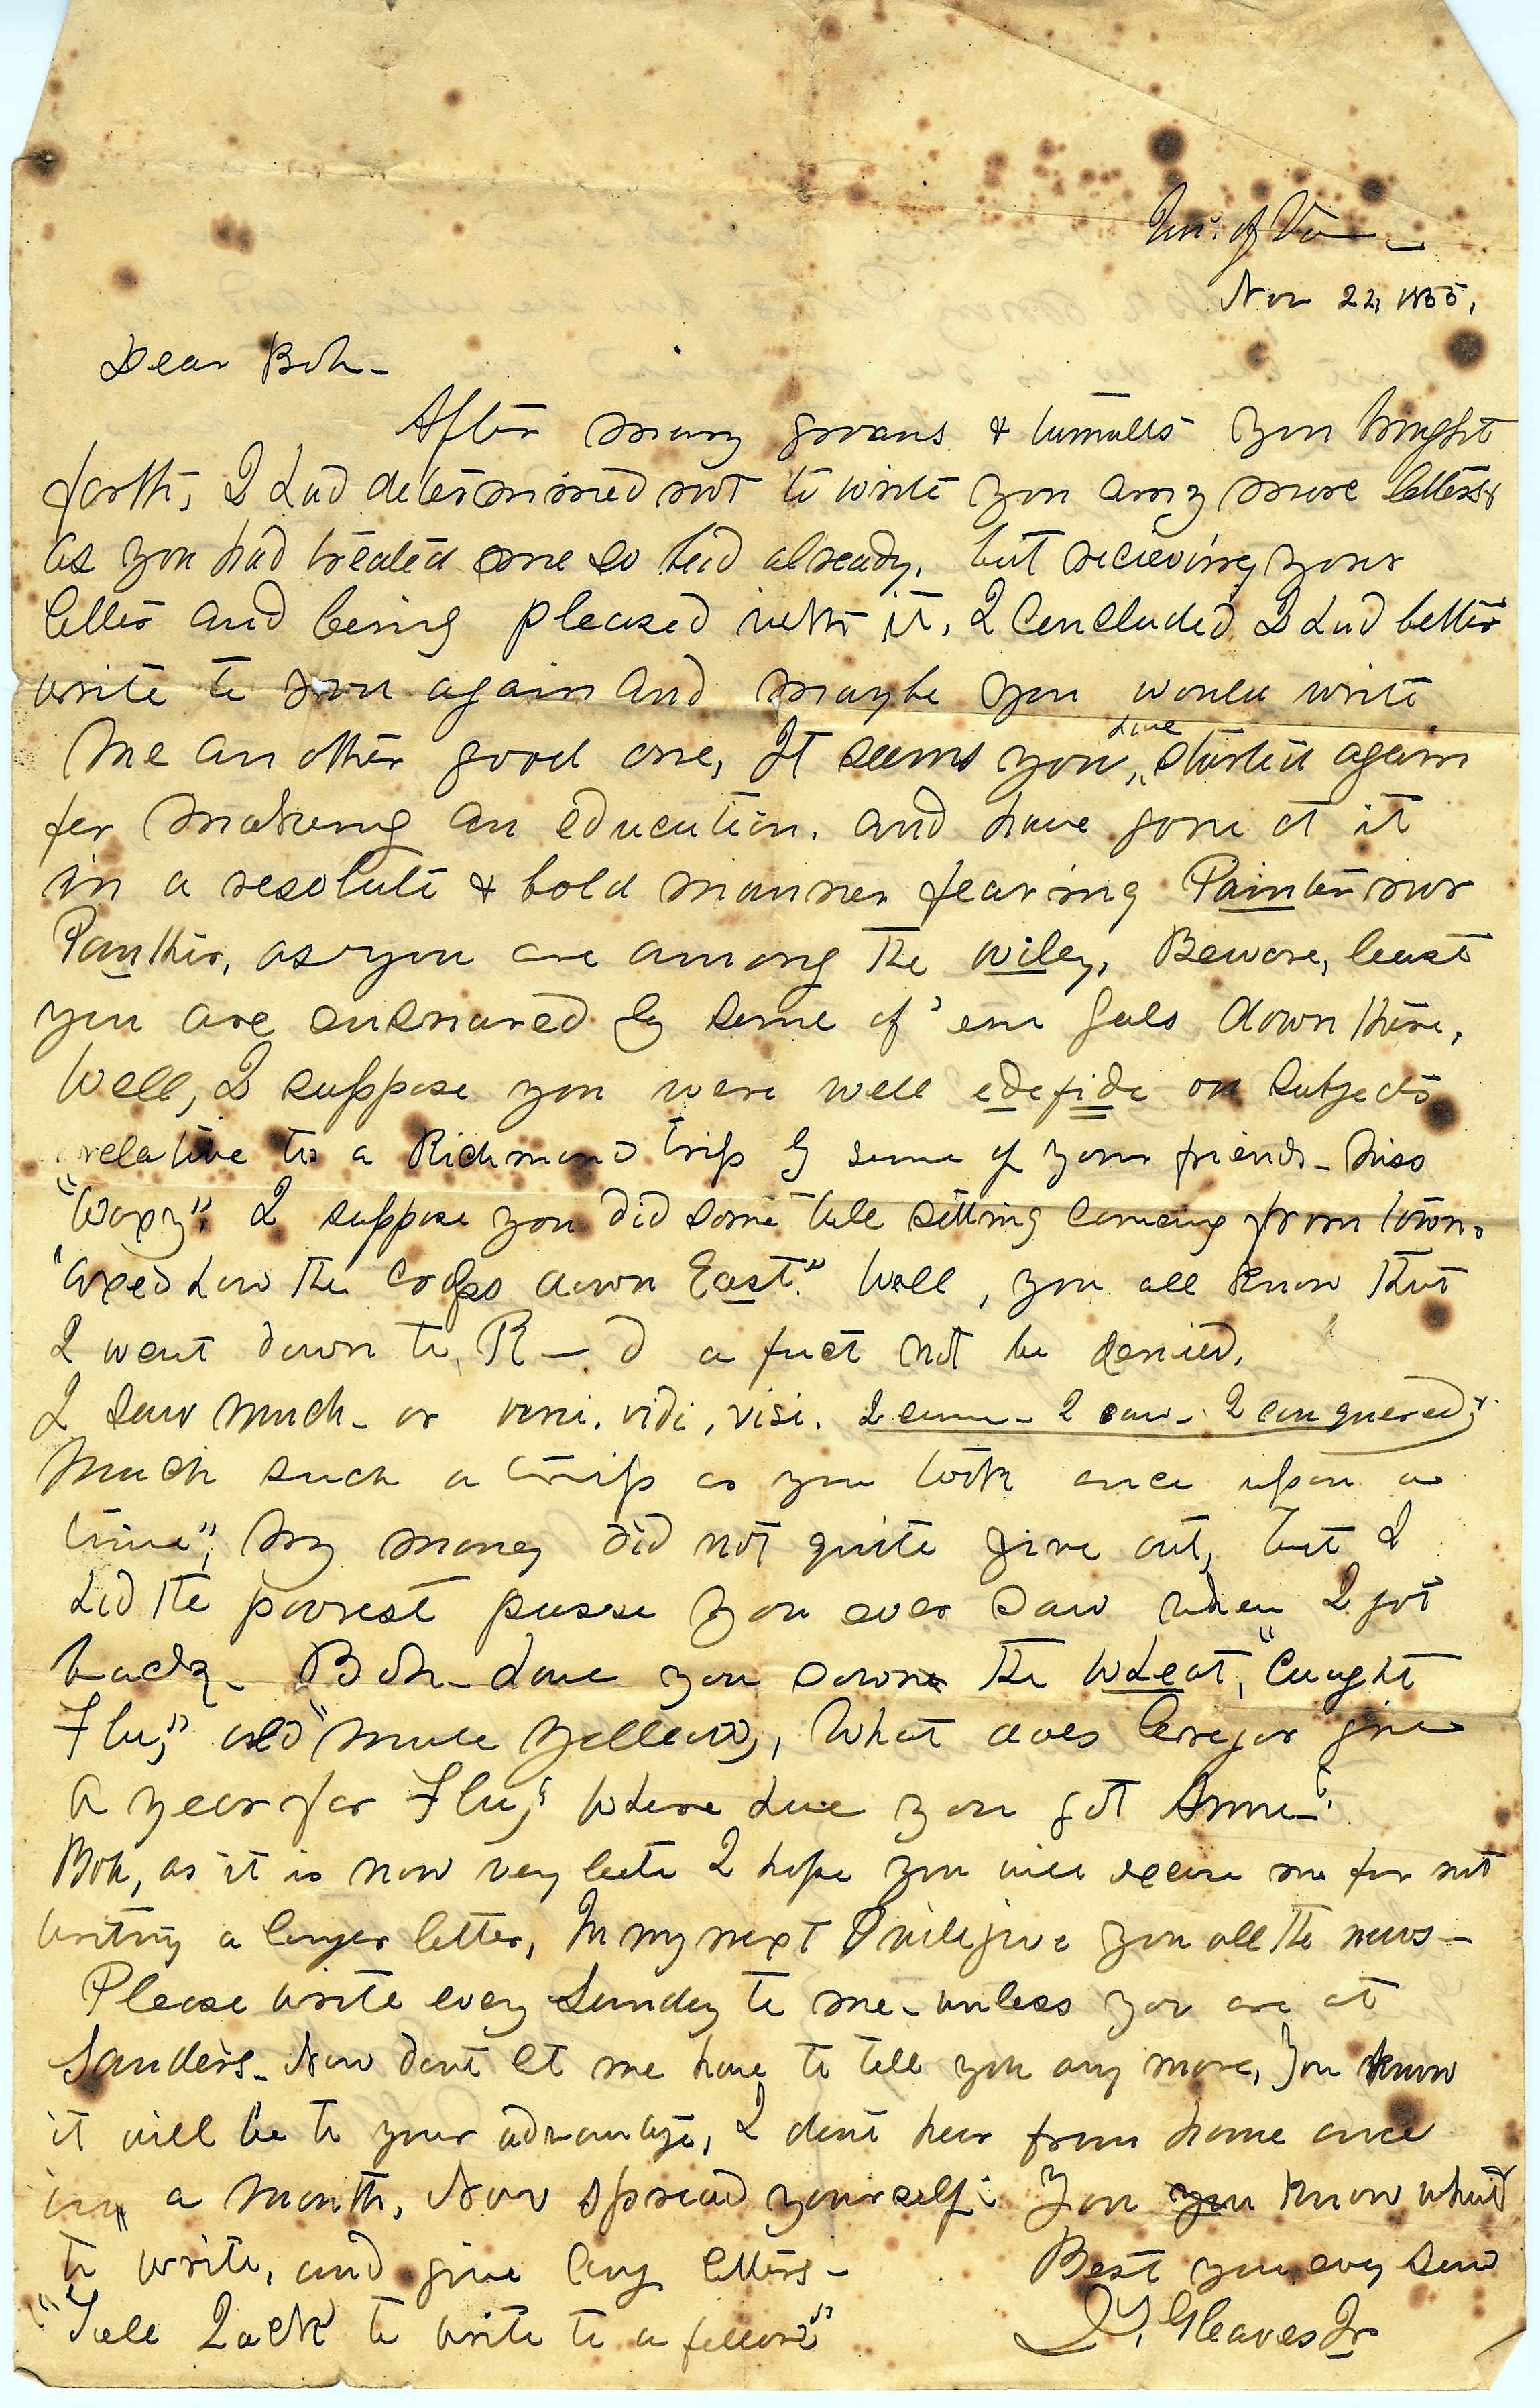 Uni. of Va
Nov 22, 1855,
Dear Bob -
After many groans & tumults you brought
forth, I had determined not to write you any more letters
as you had treated me so bad already, but recieving your
letter and being pleased with it, I concluded I had better
write to you again and maybe you would write
me another good one, It seems you have started again
for making an education, and have gone at it
in a resolute & bold manner fearing Painter nor
Panther, as you are among the wiley, Beware, least
you are ensnared by some of 'em gals down there,
Well, I suppose you were well edefide on subjects
relative to a Richmond trip by some of your friends - Miss
I suppose you did some tall sitting coming from town.
"Axed how the crops down East." Well, you all know that
I went down to R—d a fact not be denied,
I saw much - or veni, vidi, visi. I came - I saw - I conquered,
Much such a trip as you took once upon a
time", My money did not quite give out, but I
had the poorest pusse you ever saw when I got
back - Bob - have you sown the wheat, "Caught
Flu," old "mule yellow", What does give
a year for Flu, where have you got
Bob, as it is now very late I hope you will excuse me for not
writing a longer letter, In my next I will give you all the news -
Please write every Sunday to me - unless you are at
Sanders - Now dont let me have to tell you any more, You know
it will be to your advantage, I dont hear from home once
in a month, Now spread yourself: You you know what
to write, and give long letters -
Best you ever saw
"Tell Zack to write to a fellow"
Gleaves Jr